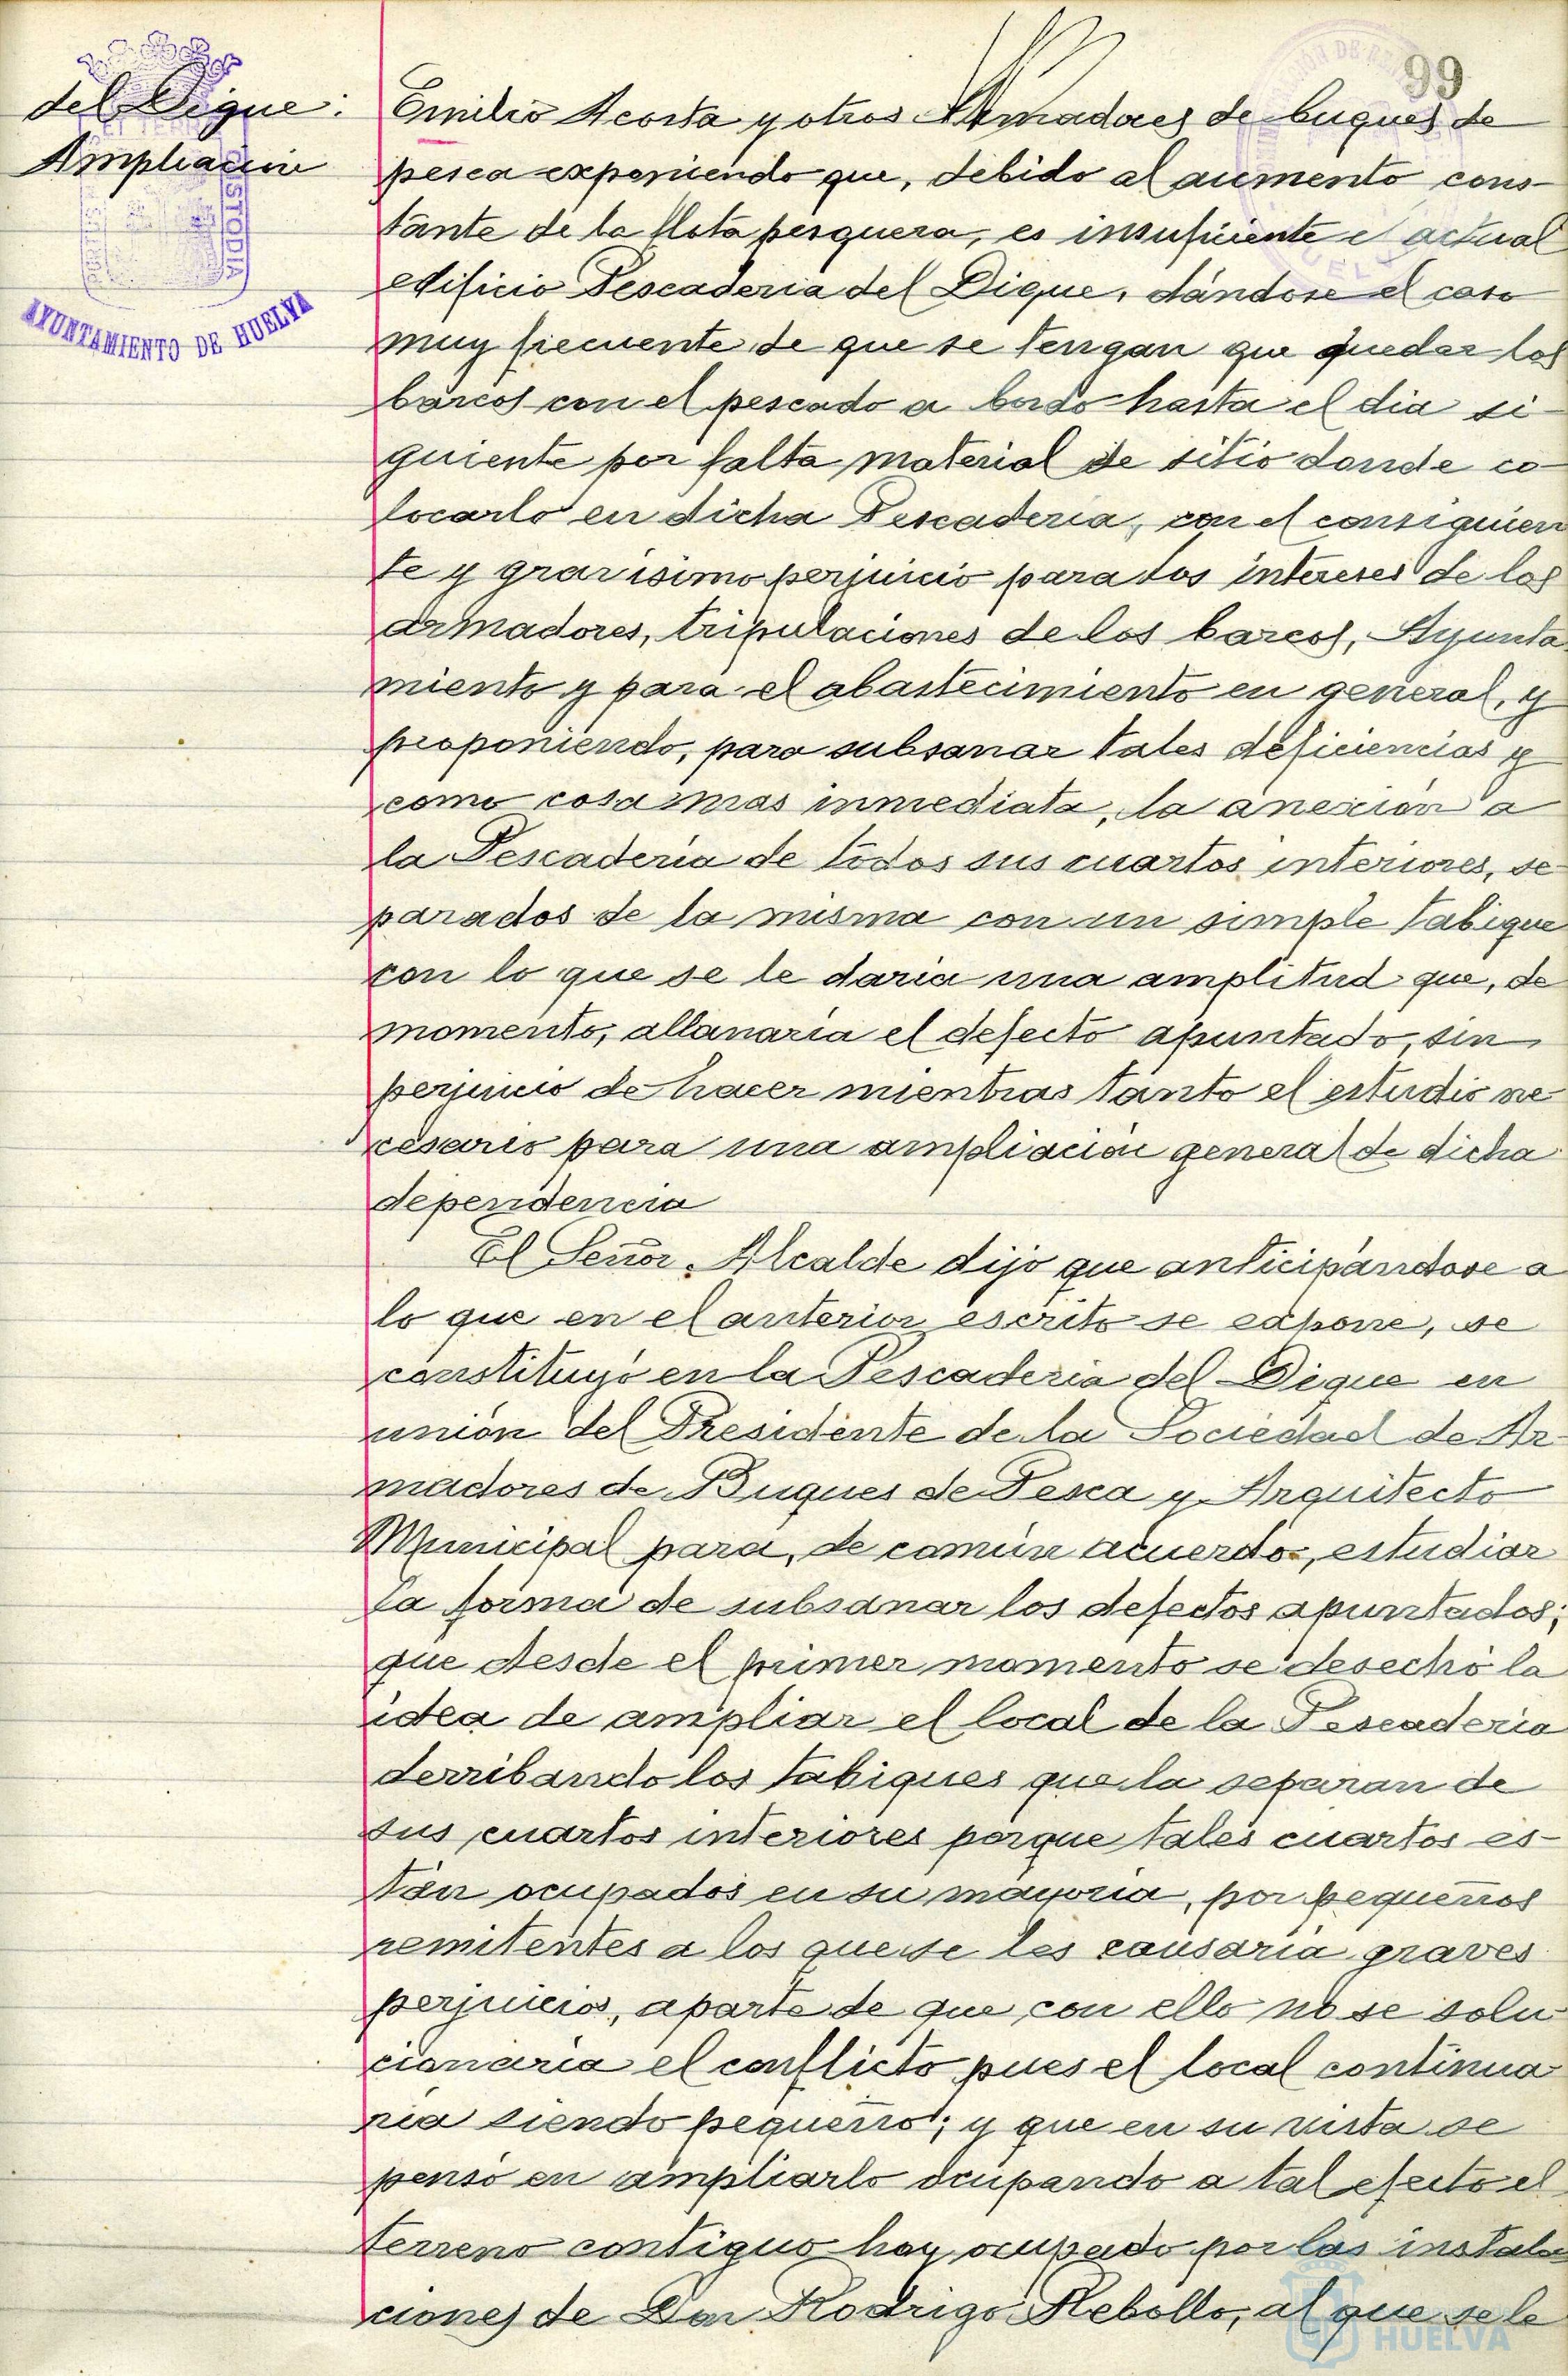 99
del Dique:
Ampliación
AYUNTAMIENTO DE HUELVA
Emilio Acosta y otros Armadores de buques de
pesca exponiendo que, debido al aumento cons-
tante de la flota pesquera, es insuficiente el actual
edificio Pescaderia del Dique, dándose el caso
muy frecuente de que se tengan que quedar los
barcos con el pescado a bordo hasta el dia si-
guiente por falta material de sitio donde co-
locarlo en dicha Pescaderia, con el consiguien
te y gravisimo perjuicio para los intereses de los
armadores, tripulaciones de los barcos, Ayunta
miento y para el abastecimiento en general, y
proponiendo, para subsanar tales deficiencias y
como cosa mas inmediata, la anexión a
la Pescaderia de todos sus cuartos interiores, se
parados de la misma con un simple tabique
con lo que se le daria una amplitud que, de
momento, allanaria el defecto apuntado, sin
perjuicio de hacer mientras tanto el estudio ne
cesario para una ampliación general de dicha
dependencia
El Señor Alcalde dijo que anticipándose a
lo que en el anterior escrito se expone, se
constituyó en la Pescaderia del Dique en
unión del Presidente de la Sociedad de Ar-
madores de Buques de Pesca y Arquitecto
Municipal para, de común acuerdo, estudiar
la forma de subsanar los defectos apuntados;
que desde el primer momento se desechó la
idea de ampliar el local de la Pescaderia
derribando los tabiques que la separan de
sus cuartos interiores porque tales cuartos es-
tán ocupados en su mayoria, por pequeños
remitentes a los que se les causaria graves
perjuicios, aparte de que con ello no se solu
cionaria el conflicto pues el local continua
ria siendo pequeño; y que en su vista se
pensó en ampliarlo ocupando a tal efecto el
terreno contiguo hoy ocupado por las instala
ciones de Don Rodrigo Rebollo, al que se le
HUELVA